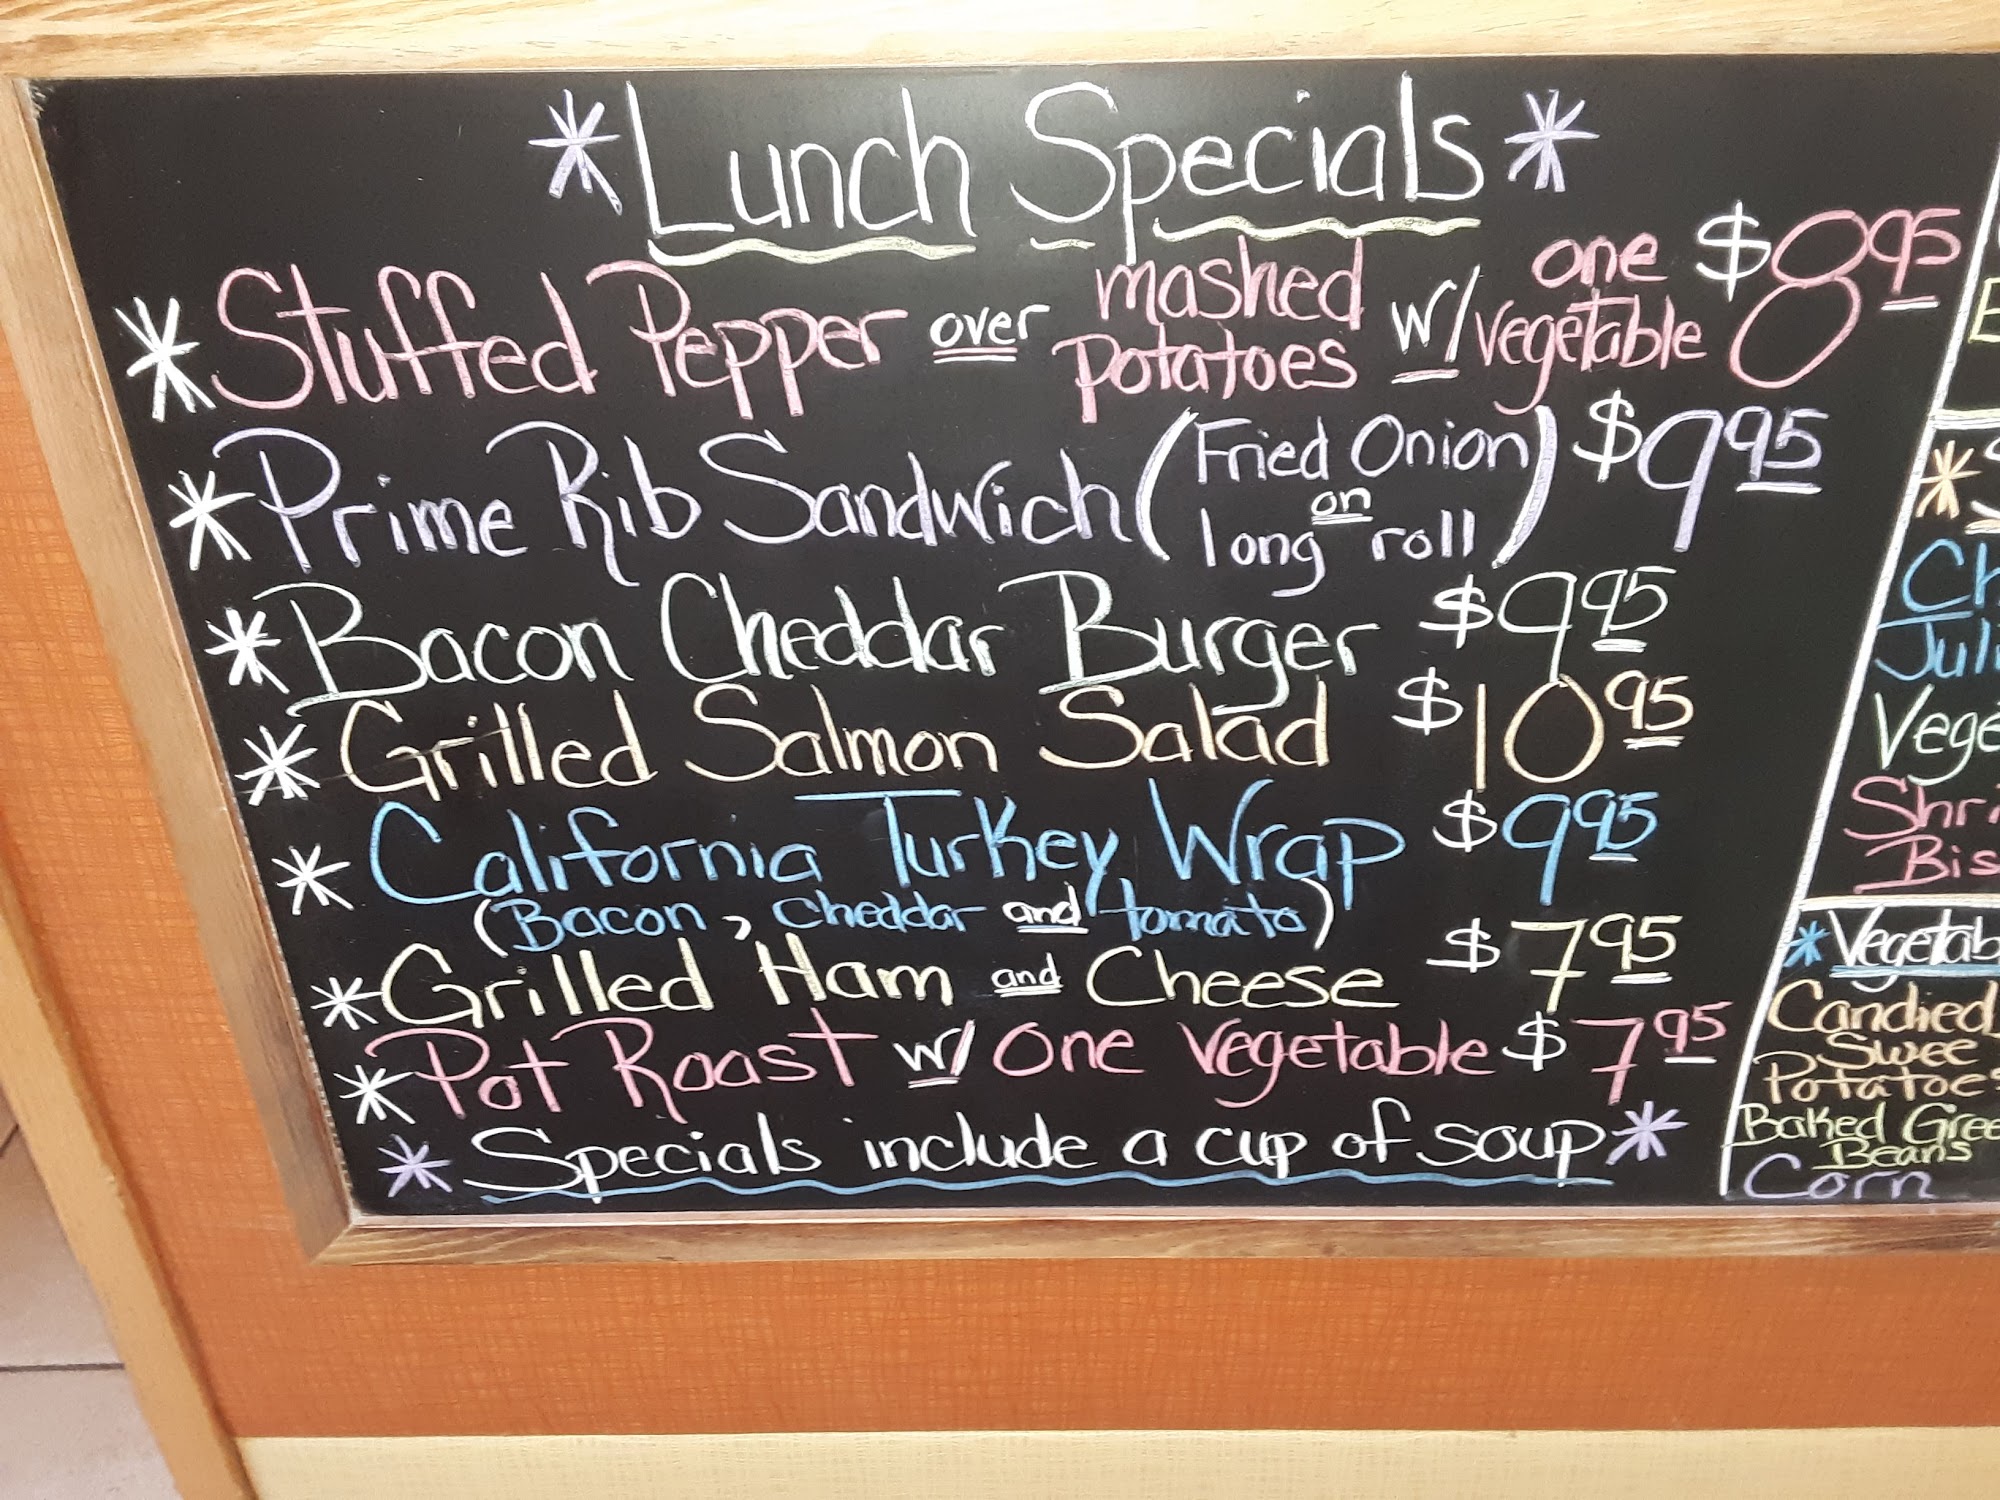 *Lunch Specials*
*Stuffed Pepper over mashed Potatoes w/ one vegetable $8.95
*Prime Rib Sandwich (Fried Onion on long roll) $9.95
*Bacon Cheddar Burger $9.95
*Grilled Salmon Salad $10.95
*California Turkey Wrap $9.95
(Bacon, cheddar and tomato)
*Grilled Ham and Cheese $7.95
*Pot Roast w/ One Vegetable $7.95
*Specials include a cup of soup*
Candied
Swee
Potatoes
Baked Gree
Beans
Corn